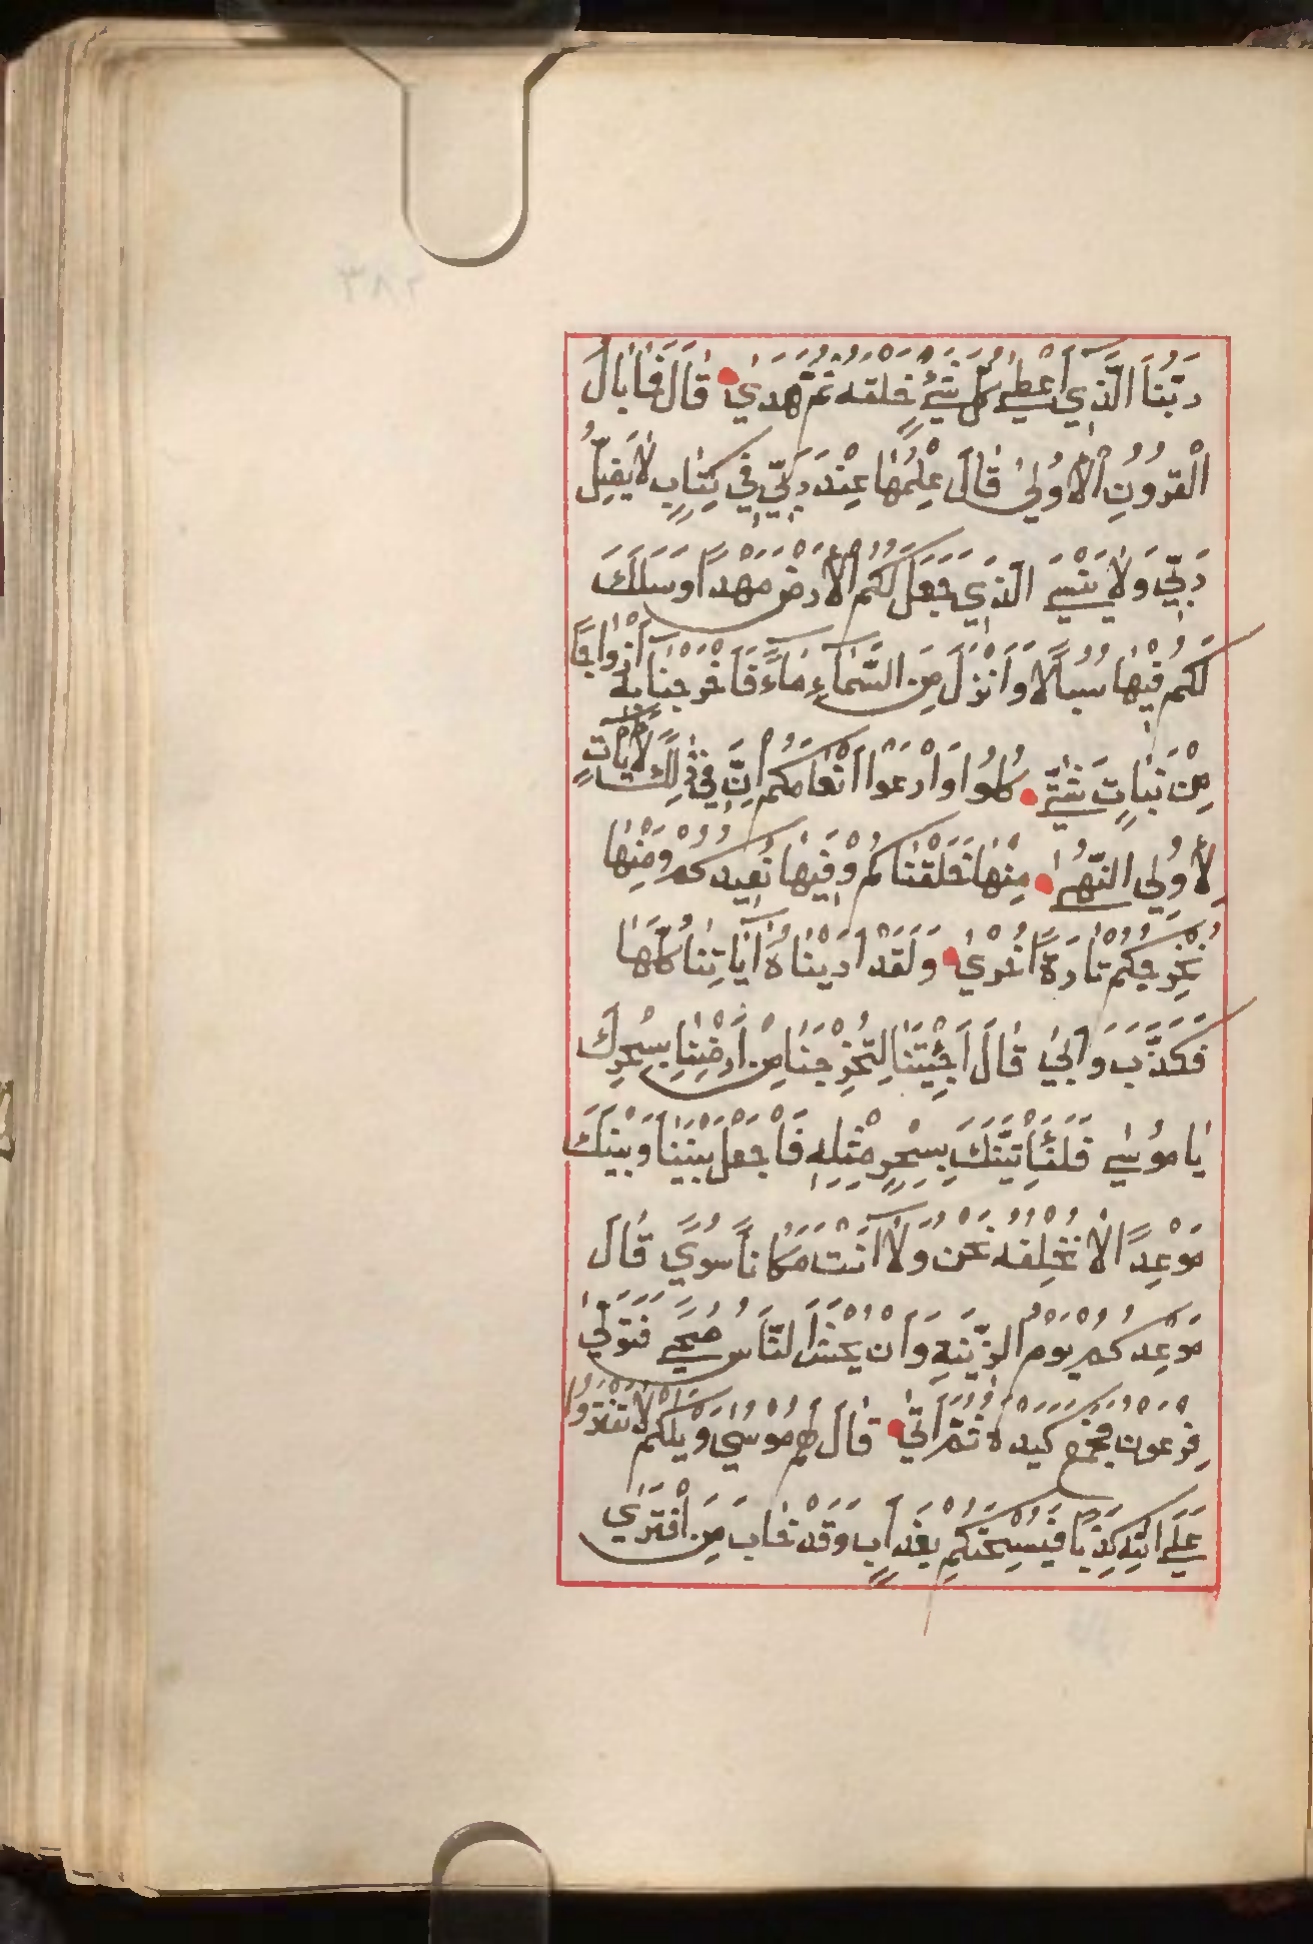 رَبُّنَا الَّذِي أَعْطَى كُلَّ شَيْءٍ خَلْقَهُ ثُمَّ هَدَىٰ قَالَ فَمَا بَالُ
الْقُرُونِ الْأُولَىٰ قَالَ عِلْمُهَا عِنْدَ رَبِّي فِي كِتَابٍ لَا يَضِلُّ
رَبِّي وَلَا يَنْسَى الَّذِي جَعَلَ لَكُمُ الْأَرْضَ مَهْدًا وَسَلَكَ
لَكُمْ فِيهَا سُبُلًا وَأَنْزَلَ مِنَ السَّمَاءِ مَاءً فَأَخْرَجْنَا بِهِ أَزْوَاجًا
مِنْ نَبَاتٍ شَتَّىٰ كُلُوا وَارْعَوْا أَنْعَامَكُمْ إِنَّ فِي ذَٰلِكَ لَآيَاتٍ
لِأُولِي النُّهَىٰ مِنْهَا خَلَقْنَاكُمْ وَفِيهَا نُعِيدُكُمْ وَمِنْهَا
نُخْرِجُكُمْ تَارَةً أُخْرَىٰ وَلَقَدْ أَرَيْنَاهُ آيَاتِنَا كُلَّهَا
فَكَذَّبَ وَأَبَىٰ قَالَ أَجِئْتَنَا لِتُخْرِجَنَا مِنْ أَرْضِنَا بِسِحْرِكَ
يَا مُوسَىٰ فَلَنَأْتِيَنَّكَ بِسِحْرٍ مِثْلِهِ فَاجْعَلْ بَيْنَنَا وَبَيْنَكَ
مَوْعِدًا لَا نُخْلِفُهُ نَحْنُ وَلَا أَنْتَ مَكَانًا سُوًى قَالَ
مَوْعِدُكُمْ يَوْمُ الزِّينَةِ وَأَنْ يُحْشَرَ النَّاسُ ضُحًى فَتَوَلَّىٰ
فِرْعَوْنُ فَجَمَعَ كَيْدَهُ ثُمَّ أَتَىٰ قَالَ لَهُمْ مُوسَىٰ وَيْلَكُمْ لَا تَفْتَرُوا
عَلَى اللَّهِ كَذِبًا فَيُسْحِتَكُمْ بِعَذَابٍ وَقَدْ خَابَ مَنِ افْتَرَىٰ